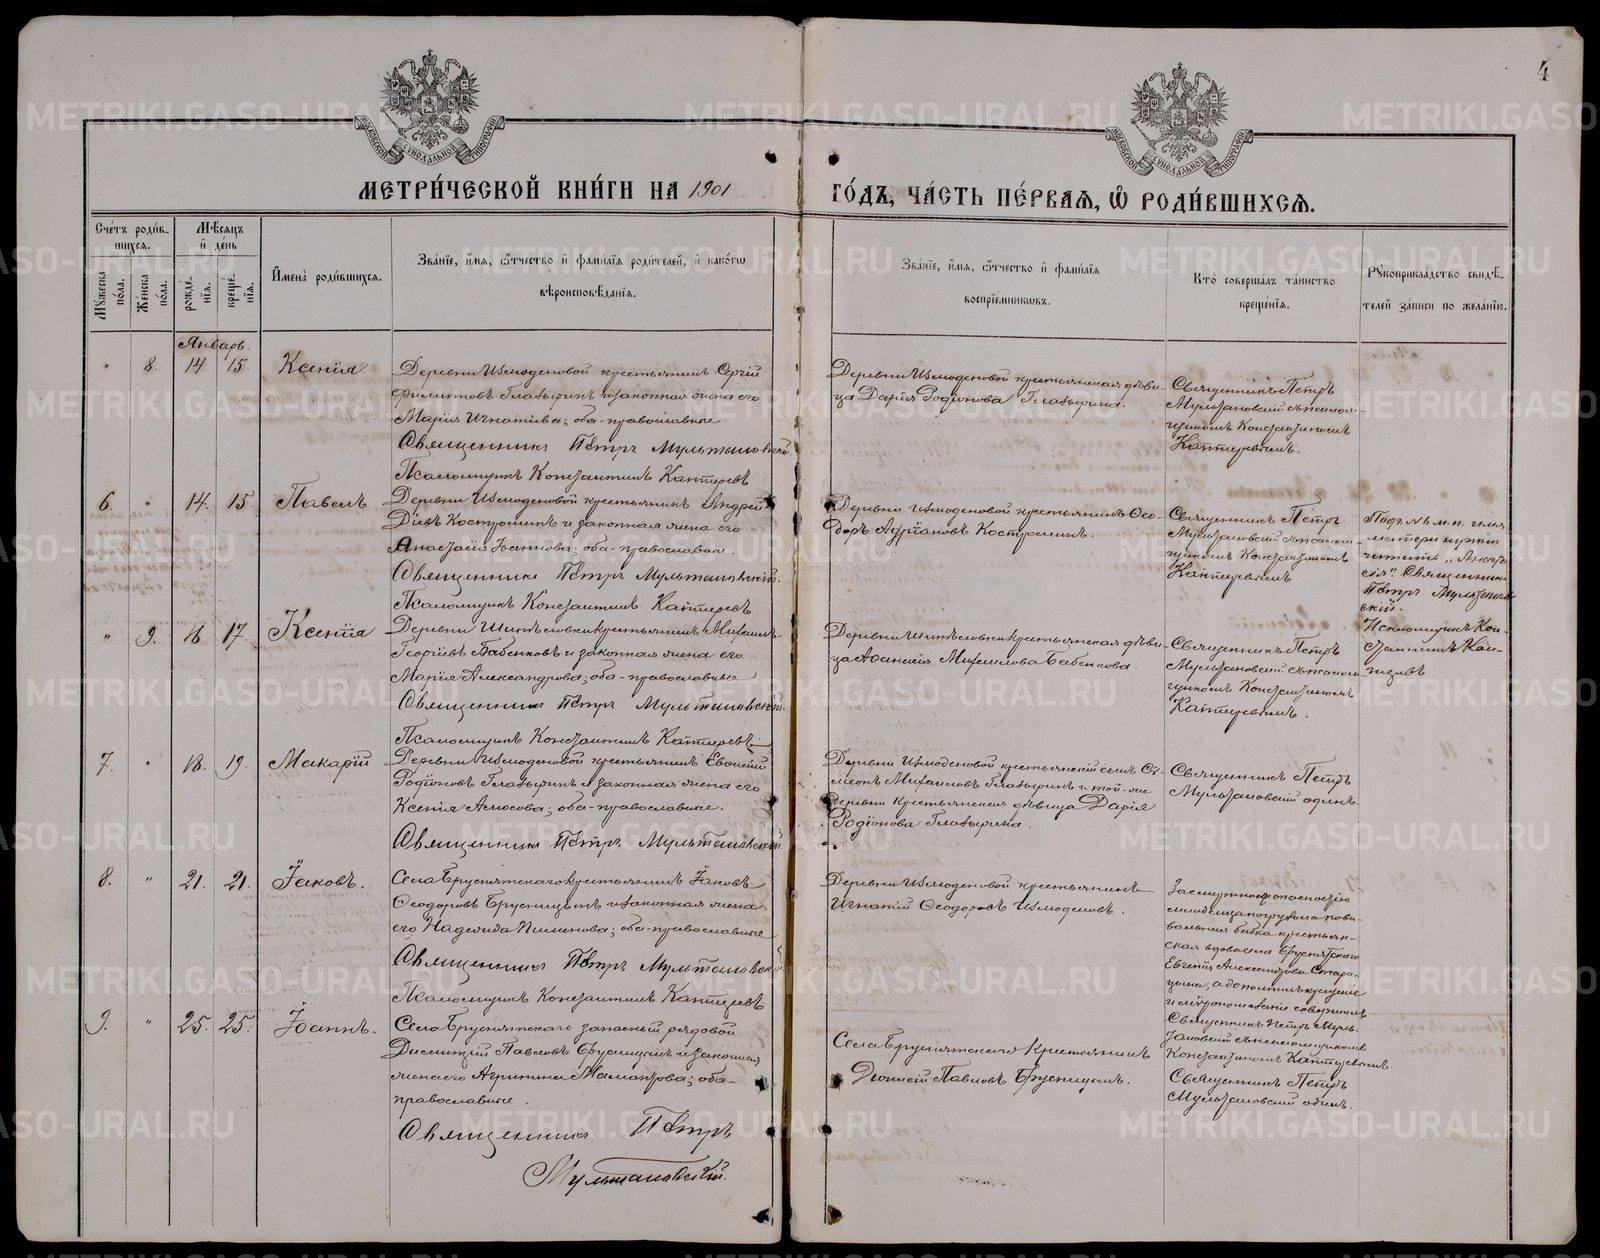 4
МЕТРИ́ЧЕСКОЙ КНИ́ГИ НА 1901
ГО́ДЪ, ЧА́СТЬ ПЕ́РВАѦ, Ѡ҆ РОДИ́ВШИХСѦ.
Сче́тъ роди́в-
шихсѧ.
Мѣ́сѧцъ
и҆ де́нь
И҆мена̀ роди́вшихсѧ.
Зва́нїе, и҆́мѧ, ѻ҆́тчество и҆ фами́лїѧ роди́телей, и҆ како́гѡ
вѣроисповѣ́данїѧ.
Мꙋ́жеска по́ла.
Же́нска по́ла.
рожде́-
нїѧ.
креще́-
нїѧ.
Зва́нїе, и҆́мѧ, ѻ҆́тчество и҆ фами́лїѧ
воспрїе́мниковъ.
Кто̀ соверша́лъ та́инство
креще́нїѧ.
Рꙋкоприкла́дство свидѣ́-
телей за́писи по жела́нїю.
Январь.
" 8. 14. 15. Ксенія
Деревни Измоденовой крестьянинъ Сергій
Филиповъ Главыринъ и законная жена его
Марія Игнатіева; оба православные.
Священникъ Петръ Мультановскій.
Псаломщикъ Константинъ Каптеревъ
Деревни Измоденовой крестьянская дѣви-
ца Дарія Родіонова Главырина.
Священникъ Петръ
Мультановскій съ псалом-
щикомъ Константиномъ
Каптеревымъ.
6. " 14. 15. Павелъ
Деревни Измоденовой крестьянинъ Андрей
Діевъ Костроминъ и законная жена его
Анастасія Іоаннова; оба православные.
Священникъ Петръ Мультановскій.
Псаломщикъ Константинъ Каптеревъ
Деревни Измоденовой крестьянинъ Ѳео-
доръ Адріановъ Костроминъ.
Священникъ Петръ
Мультановскій съ псалом-
щикомъ Константиномъ
Каптеревымъ
Подъ № м.п. имя
матери нужно
читать „Анаста-
сія". Священникъ
Петръ Мультанов-
скій.
Псаломщикъ Кон-
стантинъ Кап-
теревъ
" 9. 16. 17. Ксенія
Деревни Шипѣловки крестьянинъ Михаилъ
Георгіевъ Бабенковъ и законная жена его
Марія Александрова; оба православные
Священникъ Петръ Мультановскій.
Псаломщикъ Константинъ Каптеревъ
Деревни Шипѣловки крестьянская дѣви-
ца Аѳанасія Михаилова Бабенкова.
Священникъ Петръ
Мультановскій съ псалом-
щикомъ Константиномъ
Каптеревымъ.
7. " 18. 19. Макарій
Деревни Измоденовой крестьянинъ Евѳимій
Родіоновъ Главыринъ и законная жена его
Ксенія Амосова; оба православные.
Священникъ Петръ Мультановскій.
Деревни Измоденовой крестьянскій сынъ Си-
меонъ Михаиловъ Главыринъ и той-же
деревни крестьянская дѣвица Дарія
Родіонова Главырина.
Священникъ Петръ
Мультановскій одинъ.
8. " 21. 21. Іаковъ.
Села Бруснятскаго крестьянинъ Іаковъ
Ѳеодоровъ Брусницынъ и законная жена
его Надежда Пименова; оба православные
Священникъ Петръ Мультановскій
Псаломщикъ Константинъ Каптеревъ
Деревни Измоденовой крестьянинъ
Игнатій Ѳеодоровъ Измоденовъ.
За смертною опасностію
младенца погружала пови-
вальная бабка крестьян-
ская вдова села Бруснятскаго
Евгенія Александрова Стари-
цына, а дополнилъ крещеніе
и мѵропомазаніе совершилъ
Священникъ Петръ Муль-
тановскій съ псаломщикомъ
Константиномъ Каптеревымъ.
9. " 25. 25. Іоаннъ.
Села Бруснятскаго запасный рядовой
Димитрій Павловъ Брусницынъ и законная
жена его Агрипина Мамантова; оба
православные.
Священникъ Петръ
Мультановскій.
Села Бруснятскаго крестьянинъ
Діонисій Павловъ Брусницынъ.
Священникъ Петръ
Мультановскій одинъ.